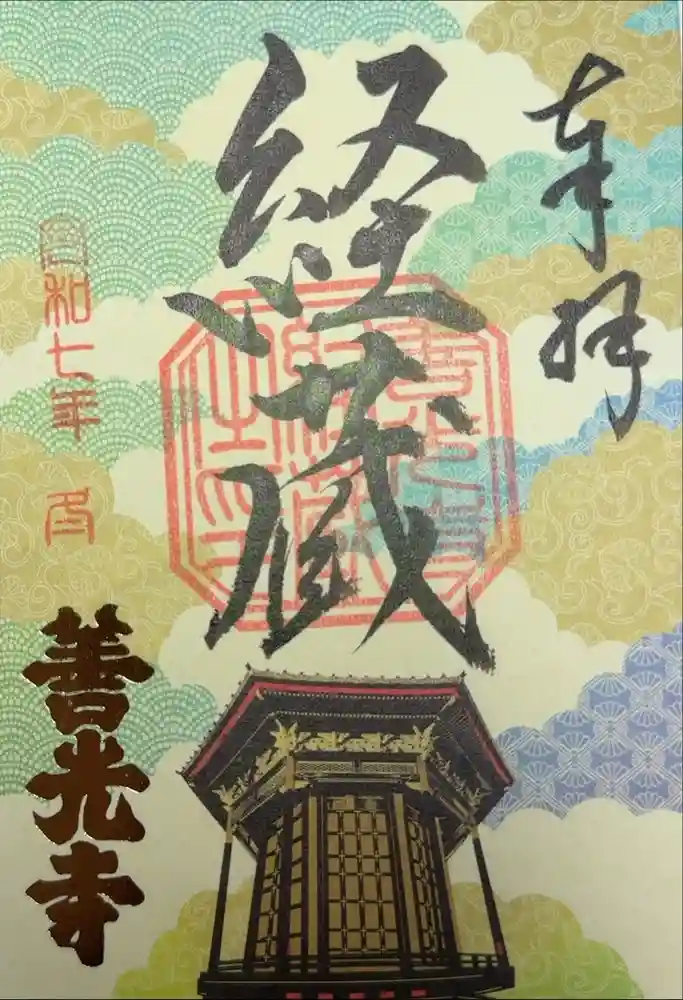 奉拝
経蔵
令和七年 月
善光寺